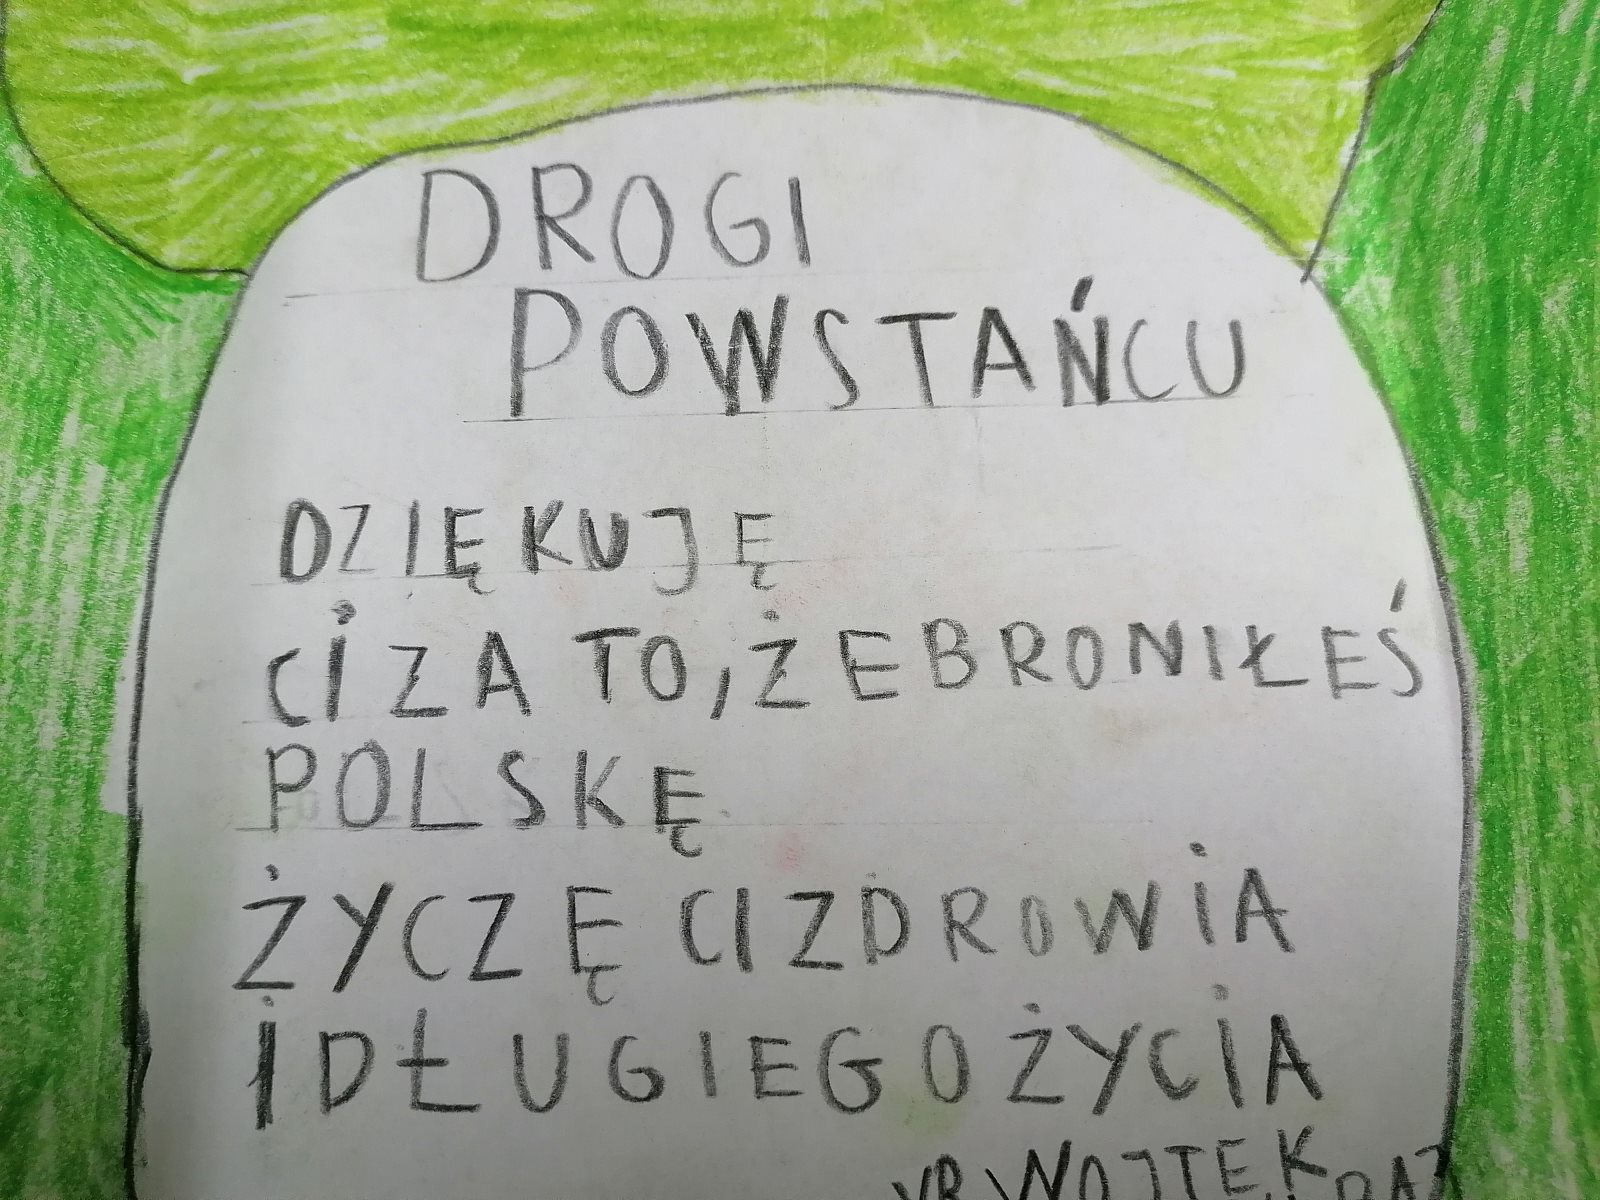 DROGI
POWSTAŃCU
DZIĘKUJĘ
CI ZA TO, ŻE BRONIŁEŚ
POLSKĘ
ŻYCZĘ CI ZDROWIA
I DŁUGIEGO ŻYCIA
WOJTEK